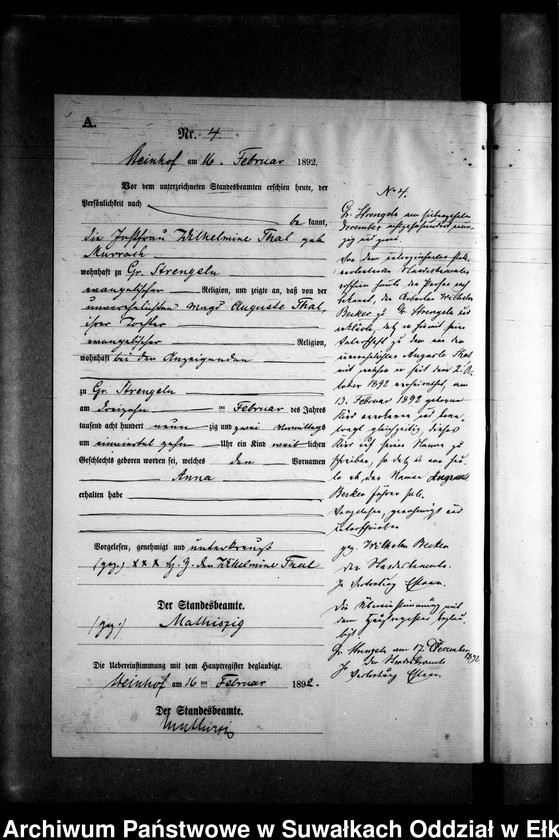 A.
Nr. 4
Steinhof am 16. Februar 1892.
Vor dem unterzeichneten Standesbeamten erschien heute, der
Persönlichkeit nach
be kannt,
die Wilhelmine Thal geb
Murrach
wohnhaft zu Gr. Strengeln
evangelischer Religion, und zeigte an, daß von der
unverehelichten Magd Auguste Thal,
ihrer Tochter
evangelischer Religion,
wohnhaft bei der Anzeigenden
zu Gr. Strengeln
am dreizehn ten Februar des Jahres
tausend acht hundert neun zig und zwei Vormittags
um zehn Uhr ein Kind weib lichen
Geschlechts geboren worden sei, welches den Vornamen
Anna
erhalten habe
Vorgelesen, genehmigt und unterkreuzt
(gez.) XXX Hz. der Wilhelmine Thal
Der Standesbeamte.
(gez.) Mathiszig
Die Uebereinstimmung mit dem Hauptregister beglaubigt.
Steinhof am 16 ten Februar 1892.
Der Standesbeamte.
Mathiszig
No 4.
Gr. Strengeln am siebzehnten
December achtzehnhundert neun
zig und zwei.
Vor dem unterzeichneten
Standesbeamten
erschien heute der Person nach
bekannt, der Arbeiter Wilhelm
Becker zu Gr. Strengeln und
erklärte, daß er hiermit seine
Vaterschaft zu dem von der
unverehelichten Auguste Thal
mit welcher er seit dem 2. Oc
tober 1892 verheirathet, am
13. Februar 1892 geborenen
Kind anerkenne und bean
tragt gleichzeitig, dieses
Kind auf seinen Namen zu
schreiben, so daß es von heu
te ab den Namen
Becker führen soll.
Vorgelesen, genehmigt und
unterschrieben
gez. Wilhelm Becker.
Der Standesbeamte.
In Vertretung
Die Übereinstimmung mit
dem Hauptregister beglau
bigt
Gr. Strengeln am 17. December 1892
Der Standesbeamte
In Vertretung
Archiwum Państwowe w Suwałkach Oddział w Ełk